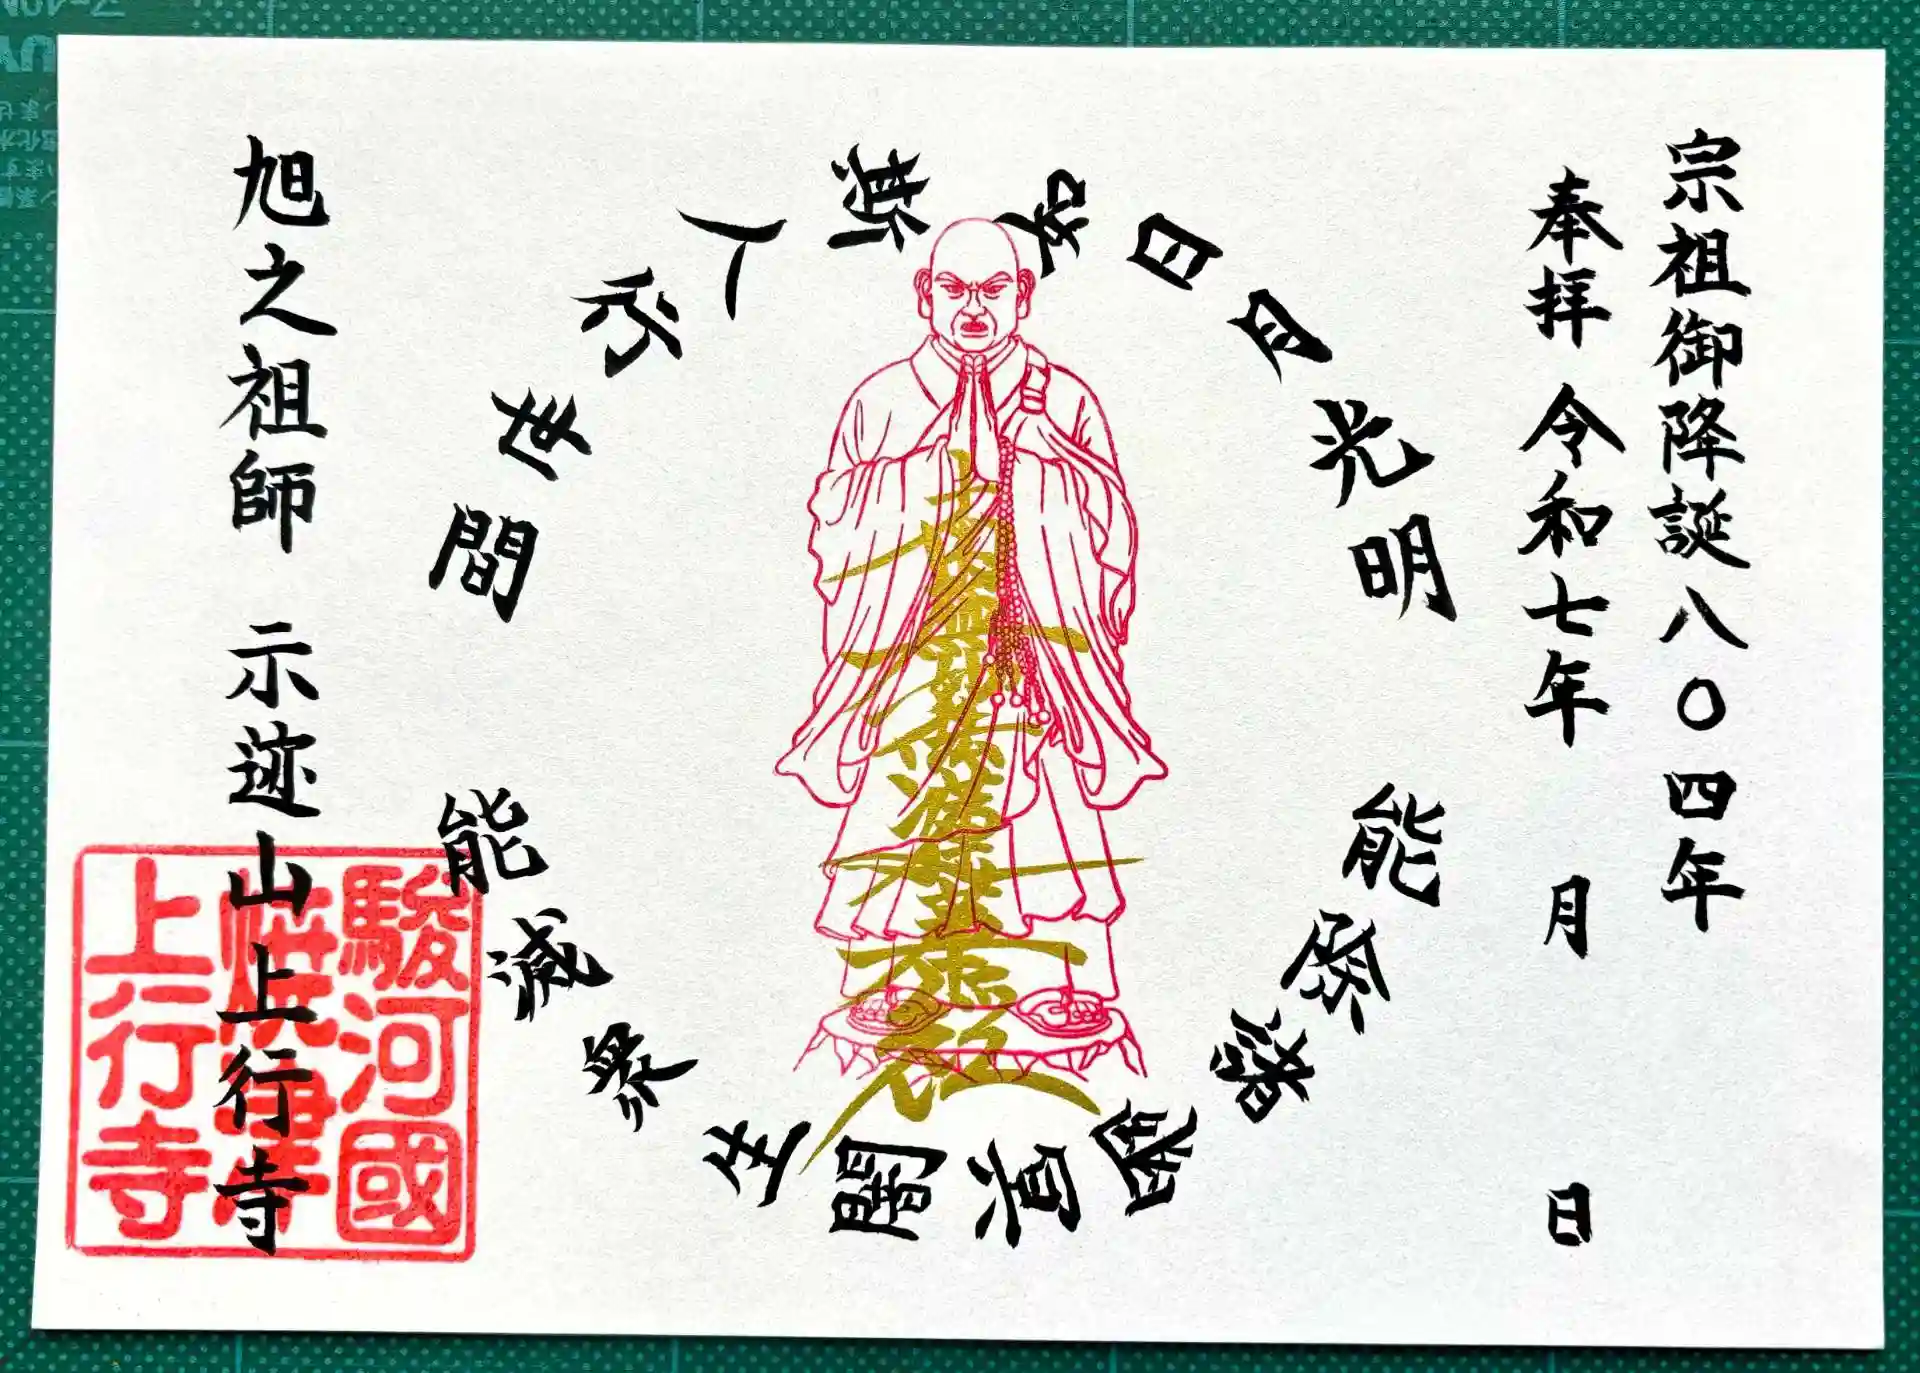 宗祖御降誕八〇四年
奉拝 令和七年 月 日
如日月光明
能除諸幽冥
斯人行世間
能滅衆生闇
南無妙法蓮華経
旭之祖師 示迹山上行寺
駿河國
焼津
上行寺